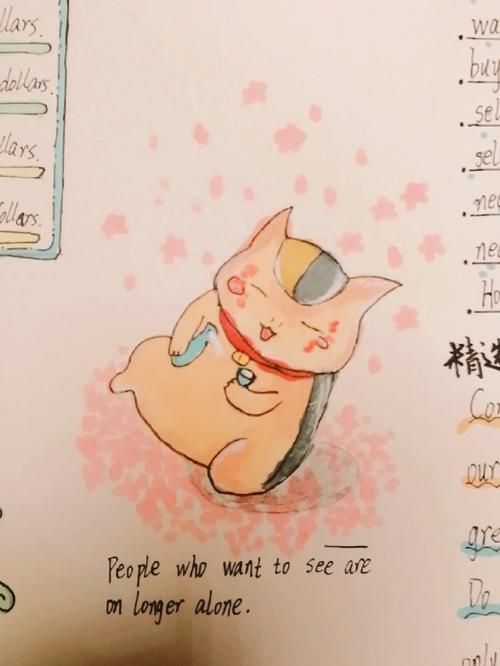 llars.
dollars.
llars.
ollars.
People who want to see are
on longer alone.
wa
buy
sel
sel
nee
nee
Ho
精选
Con
our
gre
Do
only